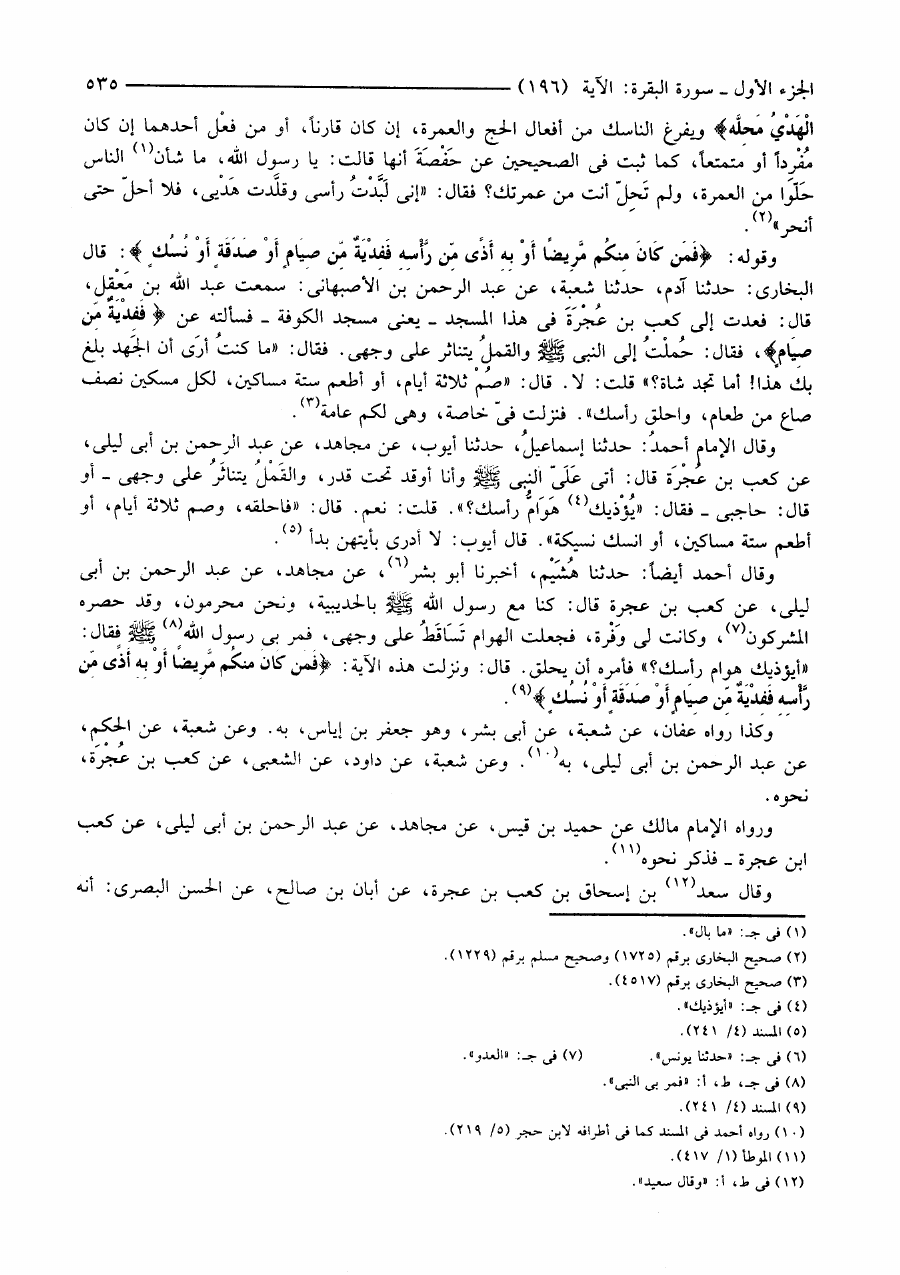 الجزء الأول ـ سورة البقرة: الآية (١٩٦) ــــــــــــــــــــ ٥٣٥
الْهَدْيُ مَحِلَّه﴾ ويفرغ الناسك من أفعال الحج والعمرة، إن كان قارناً، أو من فعْل أحدهما إن كان
مُفْرداً أو متمتعاً، كما ثبت فى الصحيحين عن حَفْصَةَ أنها قالت: يا رسول الله، ما شأن(١) الناس
حَلّوا من العمرة، ولم تَحِلّ أنت من عمرتك؟ فقال: «إنى لَبَّدْتُ رأسى وقلَّدت هَدْيى، فلا أحلّ حتى
أنحر»(٢).
وقوله: ﴿فَمَن كَانَ مِنكُم مَّرِيضًا أَوْ بِهِ أَذًى مِّن رَّأْسِهِ فَفِدْيَةٌ مِّن صِيَامٍ أَوْ صَدَقَةٍ أَوْ نُسُكٍ﴾: قال
البخارى: حدثنا آدم، حدثنا شعبة، عن عبد الرحمن بن الأصبهانى: سمعت عبد الله بن مَعْقِل،
قال: فعدت إلى كعب بن عُجْرَةَ فى هذا المسجد ـ يعنى مسجد الكوفة ـ فسألته عن ﴿فَفِدْيَةٌ مِّن
صِيَامٍ﴾، فقال: حُملْتُ إلى النبى ﷺ والقملُ يتناثر على وجهى. فقال: «ما كنتُ أرَى أن الجَهد بلغ
بك هذا! أما تجد شاة؟» قلت: لا. قال: «صُمْ ثلاثة أيام، أو أطعم ستة مساكين، لكل مسكين نصف
صاع من طعام، واحلق رأسك». فنزلت فىّ خاصة، وهى لكم عامة(٣).
وقال الإمام أحمدُ: حدثنا إسماعيلُ، حدثنا أيوب، عن مجاهد، عن عبد الرحمن بن أبى ليلى،
عن كعب بن عُجْرَة قال: أتى عَلَىّ النبى ﷺ وأنا أوقد تحت قدر، والقَمْلُ يتناثَرُ على وجهى ـ أو
قال: حاجبى ـ فقال: «يُؤْذيك(٤) هَوَامُّ رأسك؟». قلت: نعم. قال: «فاحلقه، وصم ثلاثة أيام، أو
أطعم ستة مساكين، أو انسك نسيكة». قال أيوب: لا أدرى بأيتهن بدأ (٥).
وقال أحمد أيضاً: حدثنا هُشَيْم، أخبرنا أبو بشر(٦)، عن مجاهد، عن عبد الرحمن بن أبى
ليلى، عن كعب بن عجرة قال: كنا مع رسول الله ﷺ بالحديبية، ونحن محرمون، وقد حصره
المشركون(٧)، وكانت لى وَفْرة، فجعلت الهوام تَسَاقَطُ على وجهى، فمر بى رسول الله(٨) ﷺ فقال:
«أيؤذيك هوام رأسك؟» فأمره أن يحلق. قال: ونزلت هذه الآية: ﴿فَمَن كَانَ مِنكُم مَّرِيضًا أَوْ بِهِ أَذًى مِّن
رَّأْسِهِ فَفِدْيَةٌ مِّن صِيَامٍ أَوْ صَدَقَةٍ أَوْ نُسُكٍ﴾(٩).
وكذا رواه عفان، عن شعبة، عن أبى بشر، وهو جعفر بن إياس، به. وعن شعبة، عن الحكم،
عن عبد الرحمن بن أبى ليلى، به(١٠). وعن شعبة، عن داود، عن الشعبى، عن كعب بن عُجْرَة،
نحوه.
ورواه الإمام مالك عن حميد بن قيس، عن مجاهد، عن عبد الرحمن بن أبى ليلى، عن كعب
ابن عجرة ـ فذكر نحوه(١١).
وقال سعد(١٢) بن إسحاق بن كعب بن عجرة، عن أبان بن صالح، عن الحسن البصرى: أنه
(١) فى جـ: «ما بال».
(٢) صحيح البخارى برقم (١٧٢٥) وصحيح مسلم برقم (١٢٢٩).
(٣) صحيح البخارى برقم (٤٥١٧).
(٤) فى جـ: «أيؤذيك».
(٥) المسند (٤/ ٢٤١).
(٦) فى جـ: «حدثنا يونس». (٧) فى جـ: «العدو».
(٨) فى جـ، ط، أ: «فمر بى النبى».
(٩) المسند (٤/ ٢٤١).
(١٠) رواه أحمد فى المسند كما فى أطرافه لابن حجر (٥/ ٢١٩).
(١١) الموطأ (١/ ٤١٧).
(١٢) فى ط، أ: «وقال سعيد».